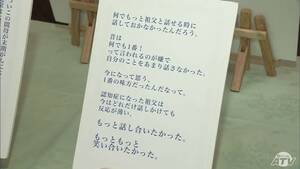 何でもっと祖父と話せる時に
話しておかなかったんだろう。
昔は
何でも1番！
って言われるのが嫌で
自分のことをあまり話さなかった。
今になって思う、
1番の味方だったんだなって。
認知症になった祖父は
今はどれだけ話しかけても
反応が薄い、
もっと話し合いたかった。
もっともっと
笑い合いたかった。
ATV